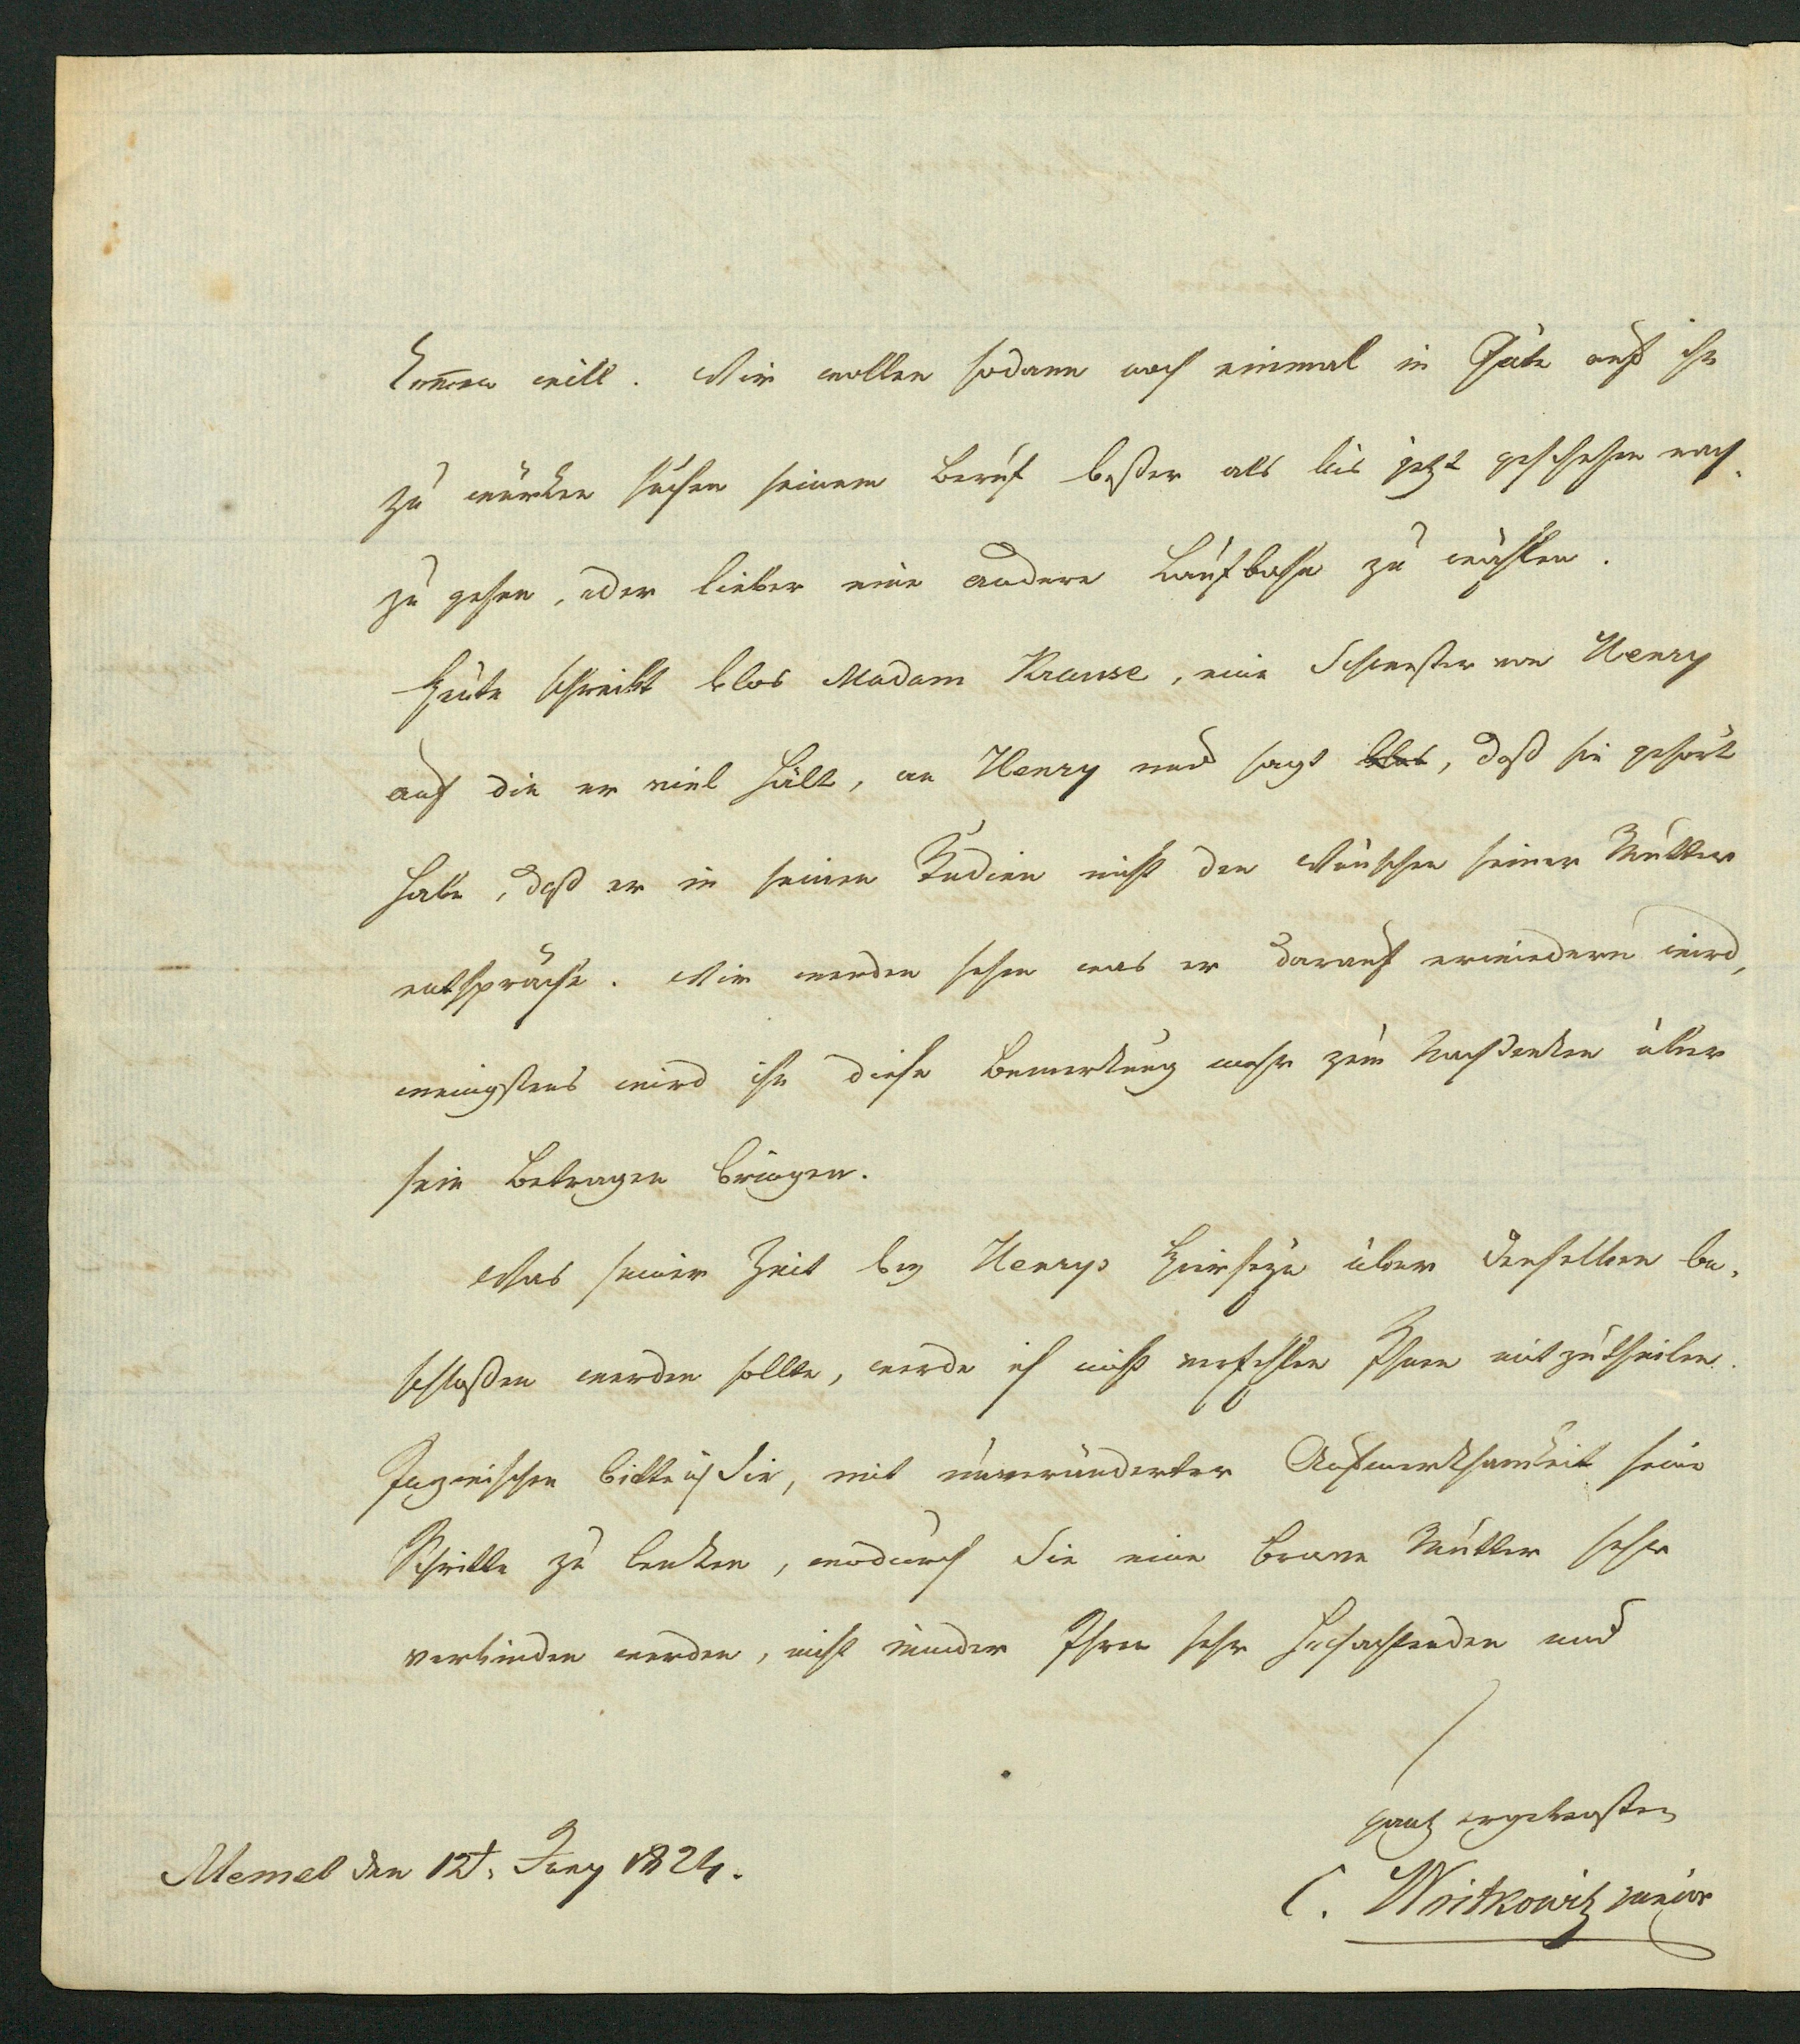 kom̅en will. Wir wollen sodann noch einmal in Güte auf ihn
zu würken suchen seinem Beruf beßer als bis jetzt geschehen nach-
zu gehen, oder lieber eine andere Laufbahn zu wählen.
Heute schreibt blos Madam Krause, eine Schwester von Henry
auf die er viel hält, an Henry und sagt blos, daß sie gehört
habe, daß er in seinen Studien nicht den Wünschen seiner Mutter
entspräche. Wir werden sehen was er darauf erwiedern wird,
wenigstens wird ihn diese Bemerkung mehr zum Nachdenken über
sein Betragen bringen.
Was seiner Zeit bey Henrys Hierseyn über denselben be-
schloßen werden sollte, werde ich nicht verfehlen Ihnen mitzutheilen.
Inzwischen bitte ich Sie, mit unveränderter Aufmerksamkeit seine
Schritte zu lenken, wodurch Sie eine brave Mutter sehr
verbinden werden, nicht minder Ihren sehr hochachtenden und
ganz ergebensten
Memel den 12t. Juny 1824.
C. Woitkowitz junior